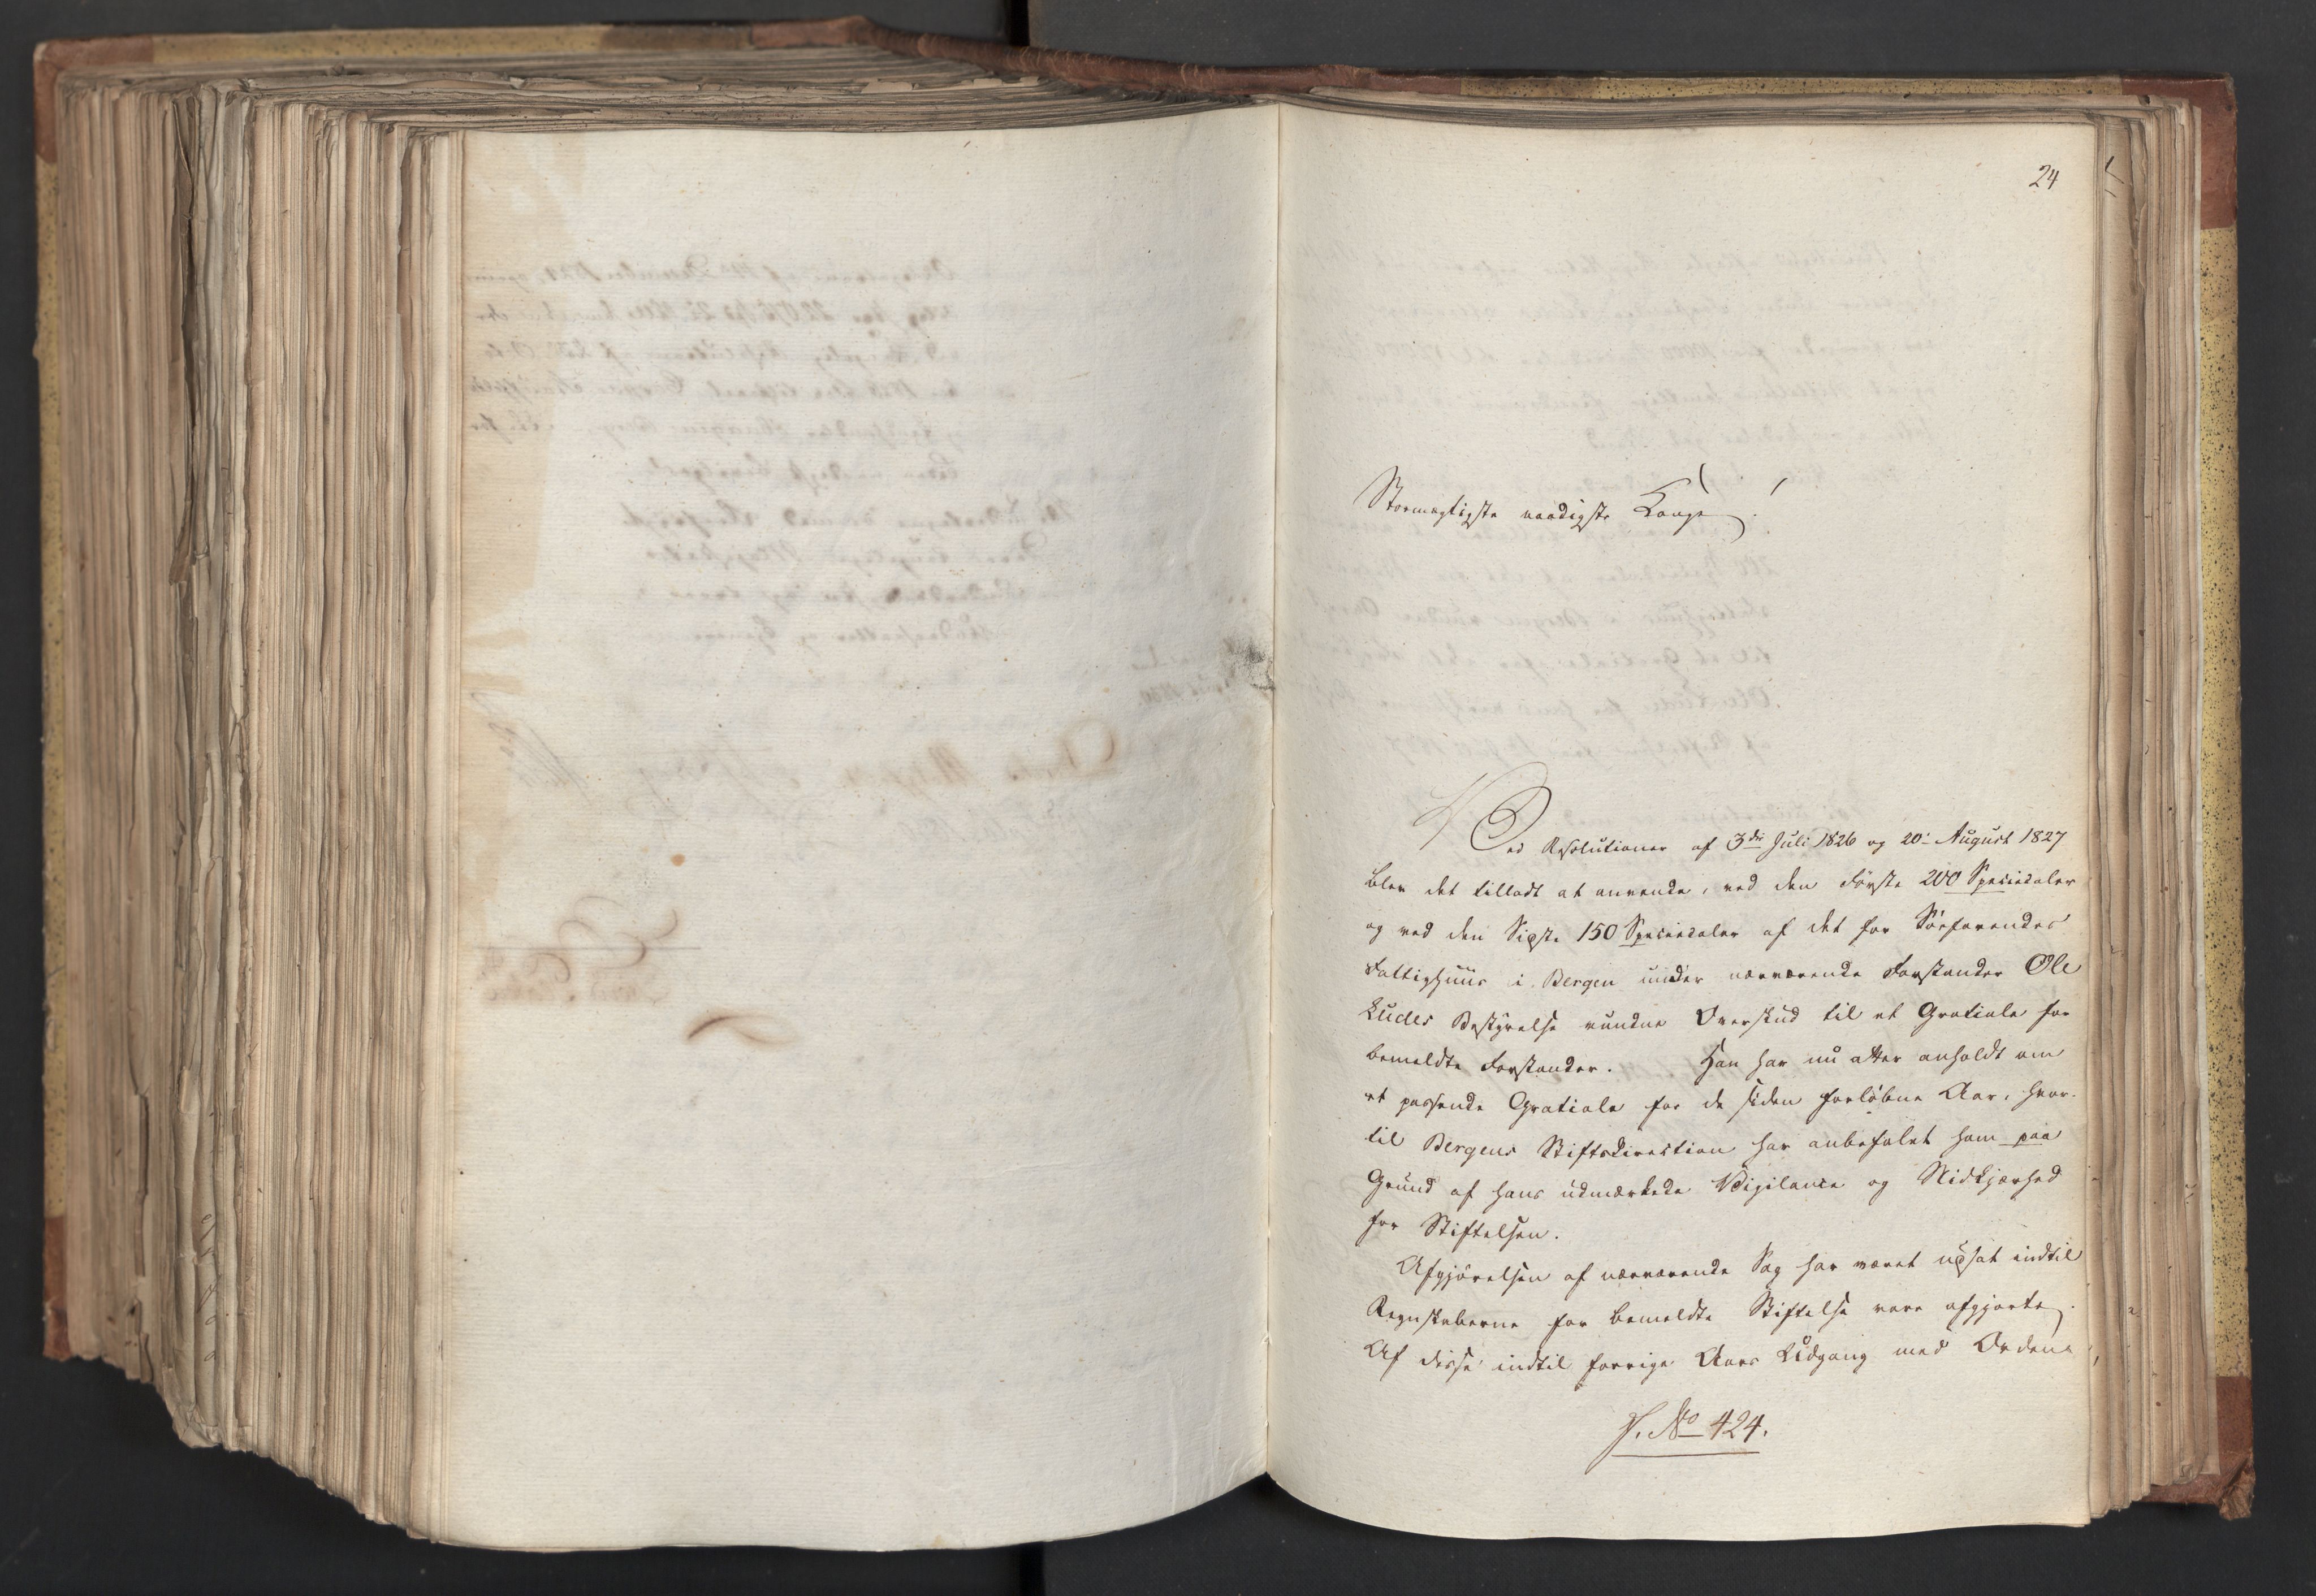 24
Stormægtigste naadigste Konge!
Ved Resolutioner af 3die Juli 1826 og 20. August 1827
blev det tilladt at anvende, ved den Første 200 Speciedaler
og ved den Sidste 150 Speciedaler af det for Söefarendes
Fattighuus i Bergen under nærværende Forstander Ole
Ludes Bestyrelse vundne Overskud til et Gratiale for
bemeldte Forstander. Han har nu atter anholdt om
et passende Gratiale for de siden forløbne Aar, hvor-
til Bergens Stiftsdirection har anbefalet ham paa
Grund af hans udmærkede Vigilance og Nidkjærhed
for Stiftelsen.
Afgjörelsen af nærværende Sag har været udsat indtil
Regnskaberne for bemeldte Stiftelse vare afgjorte.
Af disse indtil forrige Aars Udgang med Ordene
J. No 424.